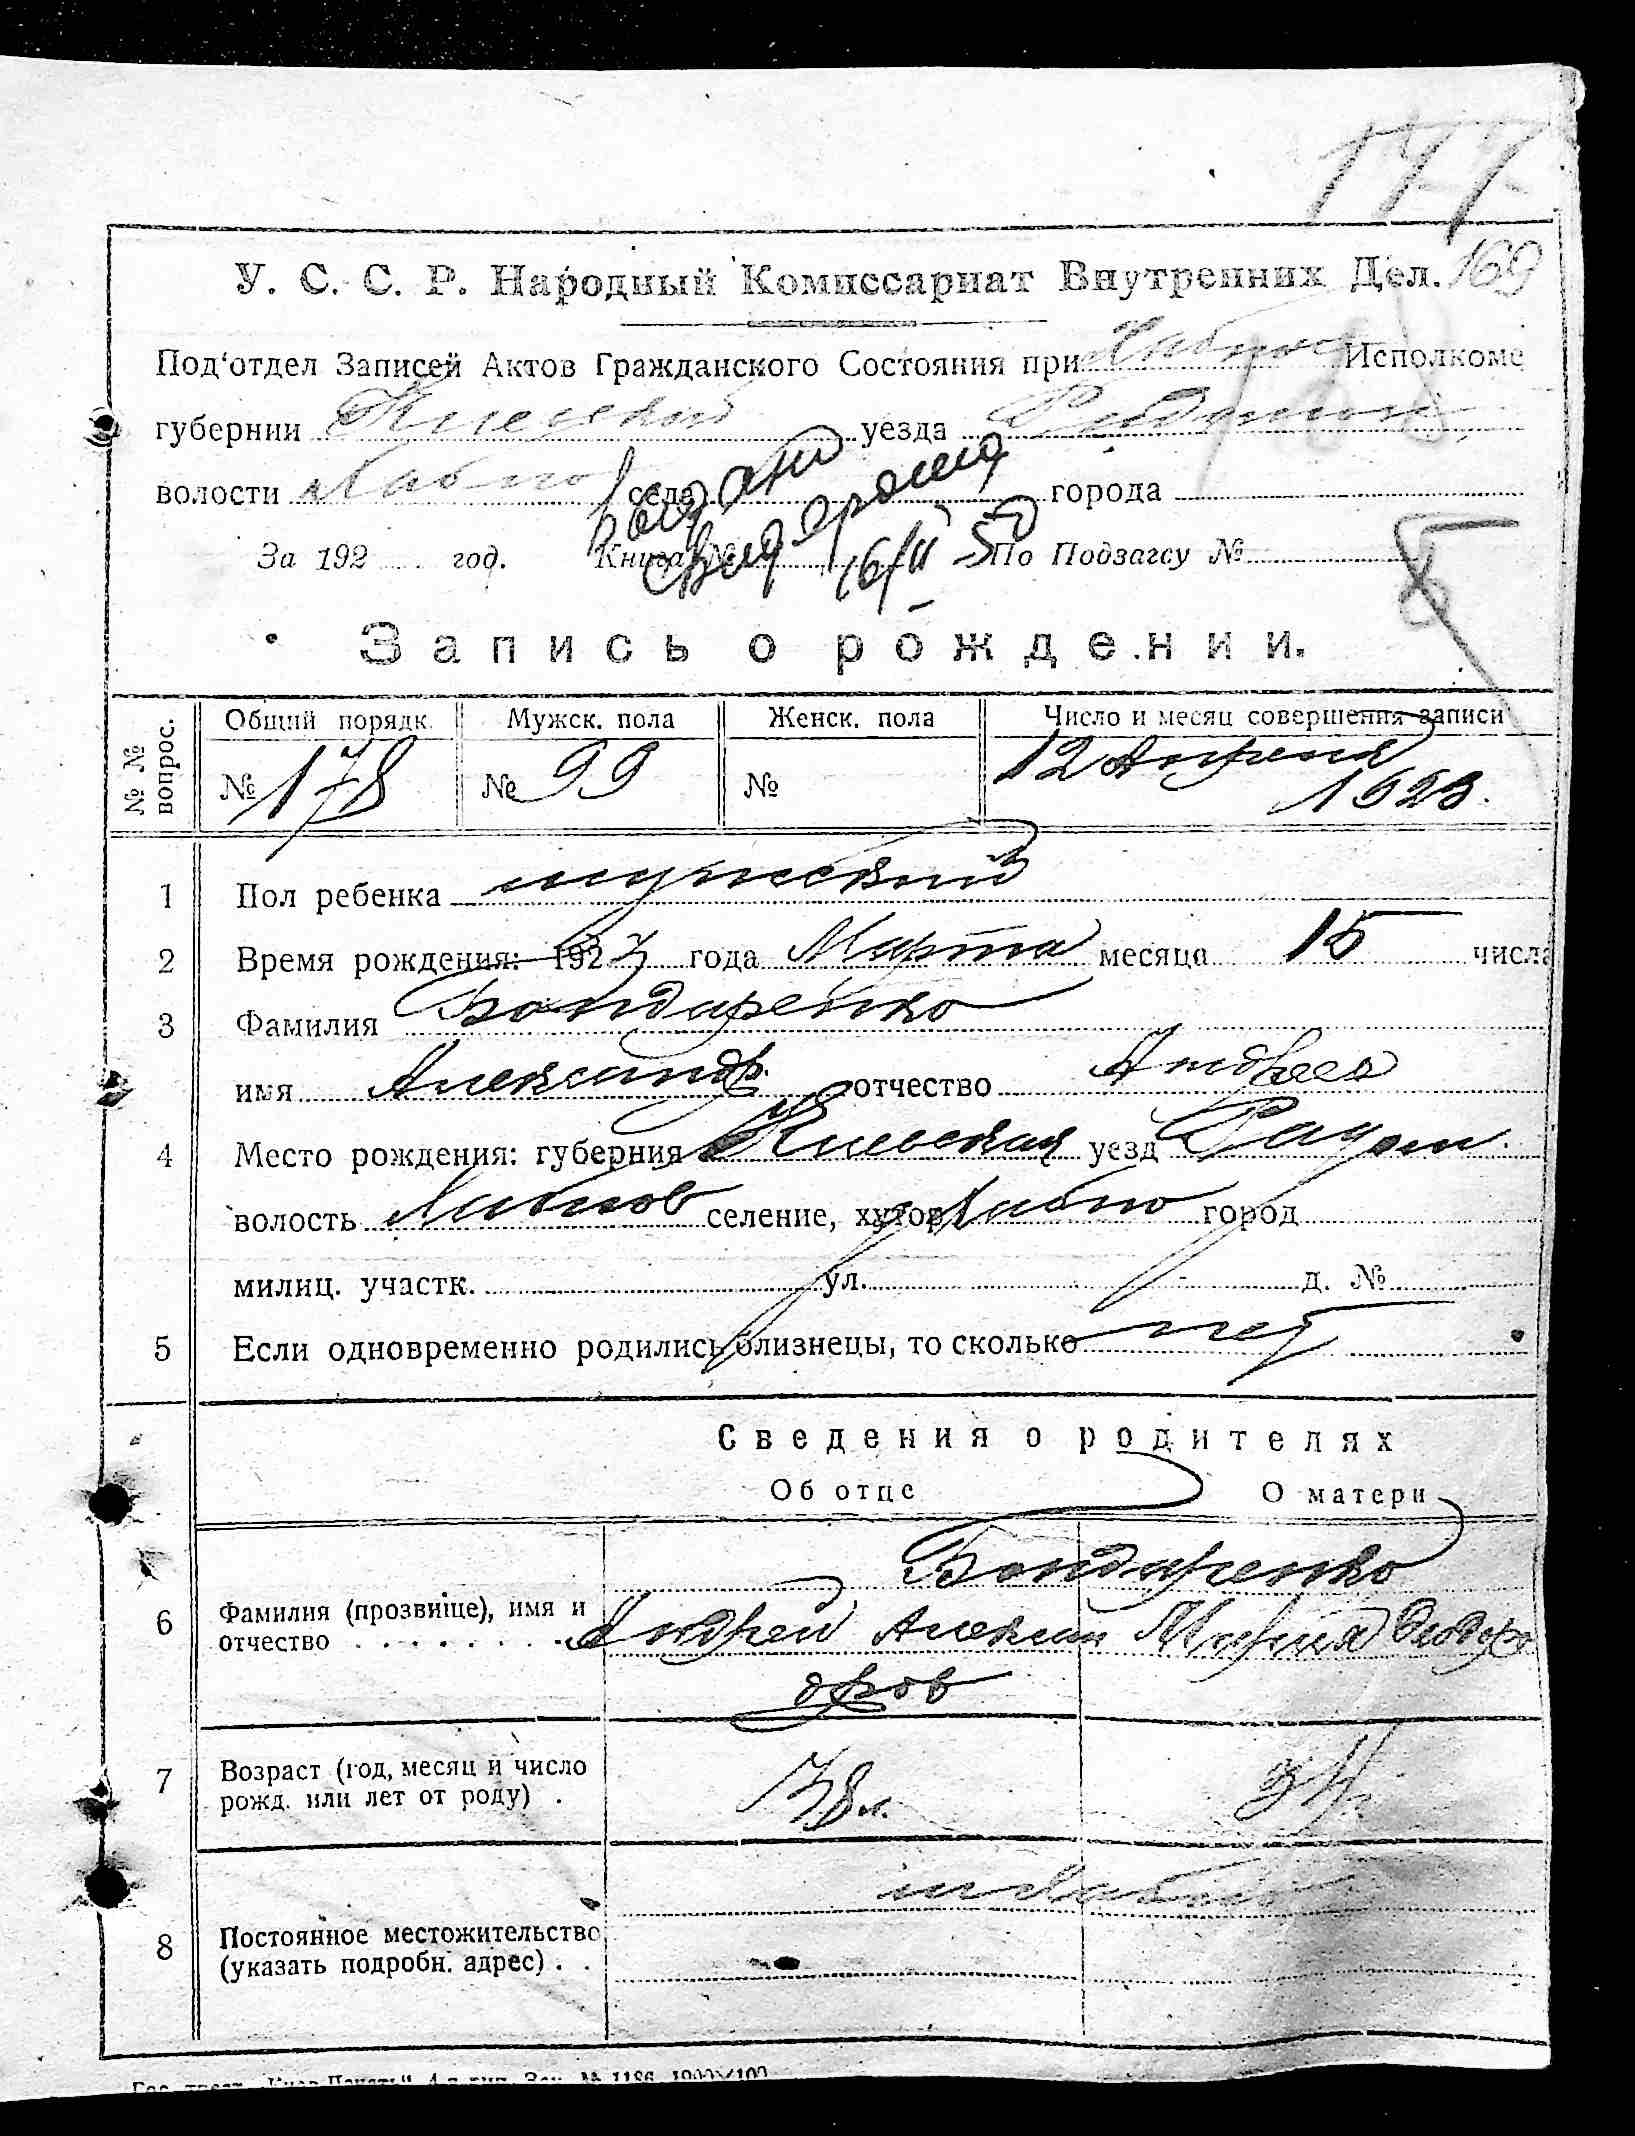 177
У. С. С. Р. Народный Комиссариат Внутренних Дел. 169
Под‘отдел Записей Актов Гражданского Состояния при Исполкоме
губернии Киевской уезда
волости села города
выдано
За 192 год. Книга № 16/II 50 По Подзагсу №
Запись о рождении.
№ № вопрос. Общий порядк. Мужск. пола Женск. пола Число и месяц совершения записи
№ 178 № 99 № 12 Апреля
1923.
1 Пол ребенка мужский
2 Время рождения: 1923 года Марта месяца 15 числа
3 Фамилия Бондаренко
имя Александр отчество Андреев
4 Место рождения: губерния Киевская уезд Радом.
волость Хабнов селение, хутор Хабно город
милиц. участк. ул. д. №
5 Если одновременно родились близнецы, то сколько нет
Сведения о родителях
Об отце О матери
Бондаренко
6 Фамилия (прозвище), имя и Андрей Алексан Мария Федоро
отчество . . . . . . . .
дров
7 Возраст (год, месяц и число 38 л.
рожд. или лет от роду) .
м Хабно
8 Постоянное местожительство
(указать подробн. адрес) . .